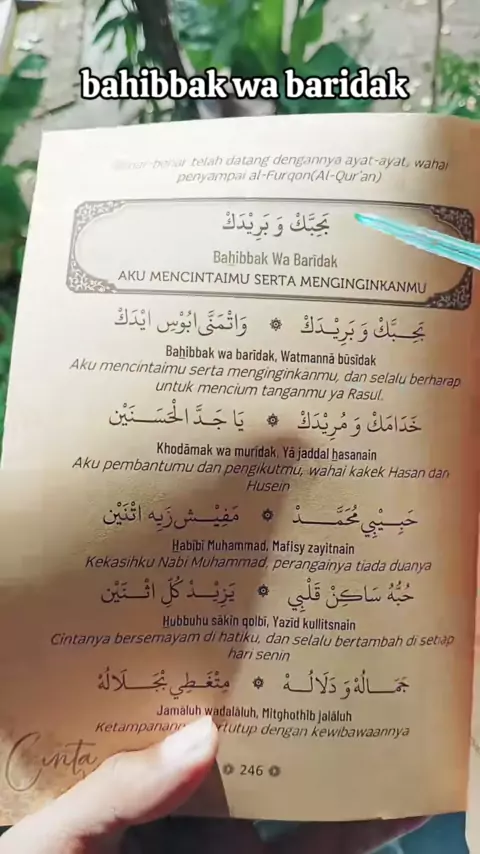 bahibbak wa baridak
telah datang dengannya ayat-ayat, wahai
penyampai al-Furqon(Al-Qur'an)
بَحِبَّكْ وَ بَرِيْدَكْ
Baḥibbak Wa Barīdak
AKU MENCINTAIMU SERTA MENGINGINKANMU
بَحِبَّكْ وَ بَرِيْدَكْ ۞ وَاتْمَنَّى ابُوْسِ ايْدَكْ
Baḥibbak wa barīdak, Watmannā būsīdak
Aku mencintaimu serta menginginkanmu, dan selalu berharap
untuk mencium tanganmu ya Rasul.
خَدَامَكْ وَ مُرِيْدَكْ ۞ يَا جَدَّ الْحَسَنَيْن
Khodāmak wa murīdak, Yā jaddal ḥasanain
Aku pembantumu dan pengikutmu, wahai kakek Hasan dan
Husein
حَبِيْبِيْ مُحَمَّدْ ۞ مَفِيْشْ زَيِه اتْنَيْن
Ḥabībī Muhammad, Mafisy zayitnain
Kekasihku Nabi Muhammad, perangainya tiada duanya
حُبُّهُ سَاكِنْ قَلْبِيْ ۞ يَزِيْدْ كُلّ اثْنَيْن
Ḥubbuhu sākin qolbī, Yazīd kullitsnain
Cintanya bersemayam di hatiku, dan selalu bertambah di setiap
hari senin
جَمَالُهْ وَ دَلَالُهْ ۞ مِتْغَطِي بْجَلَالُهْ
Jamāluh wadalāluh, Mitghothīb jalāluh
Ketampanan tertutup dengan kewibawaannya
Cinta
246